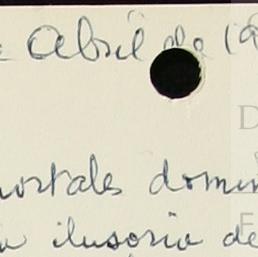 Abril de 19
mortales domin
ilusoria de